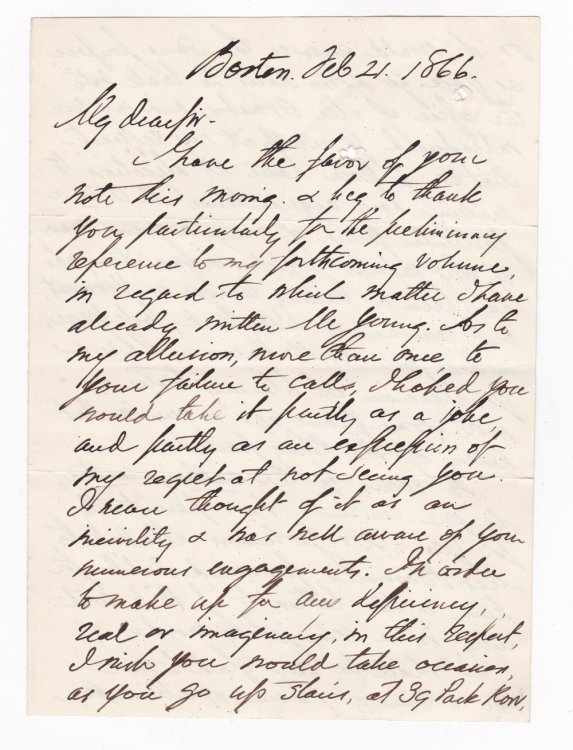 Boston. Feb 21. 1866.
My dear Sir -
I have the favor of your
note this morng. & beg to thank
you particularly for the preliminary
reference to my forthcoming volume,
in regard to which matter I have
already written Mr Young. As to
my allusion, more than once, to
your failure to calls, I hoped you
would take it partly as a joke,
and partly as an expression of
my regret at not seeing you.
I never thought of it as an
incivility & was well aware of your
numerous engagements. In order
to make up for any deficiency,
real or imaginary, in this respect,
I wish you would take occasion,
as you go up stairs, at 39 Park Row,